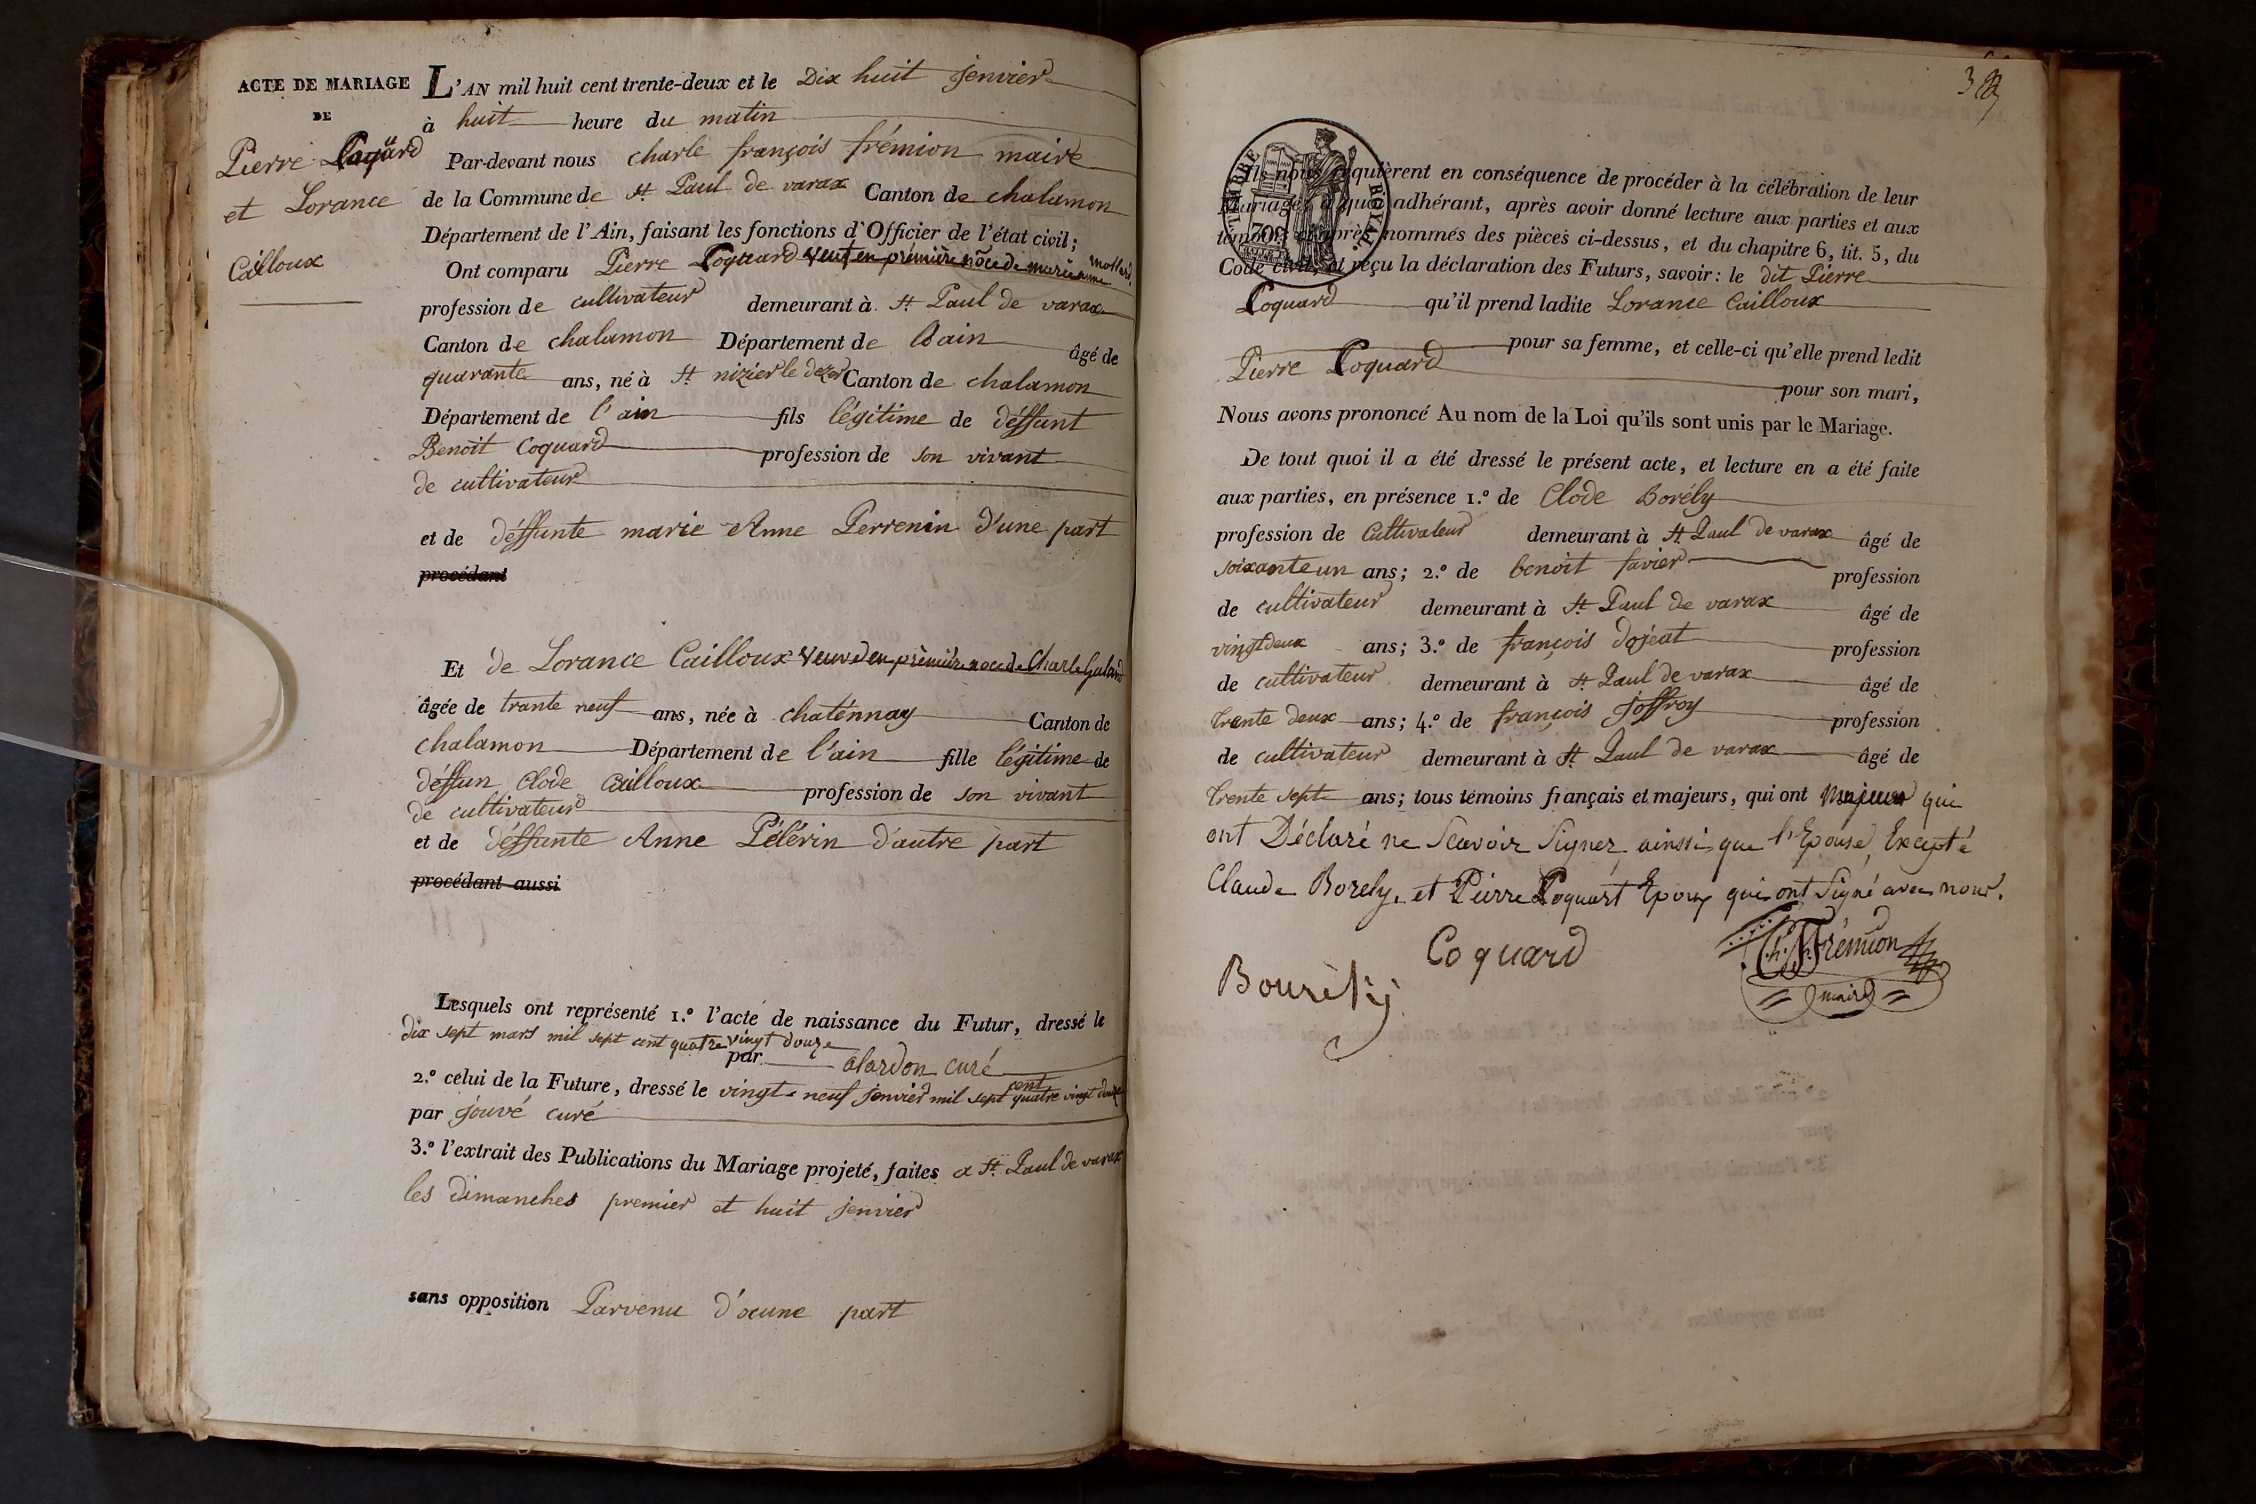 ACTE DE MARIAGE
DE
Pierre Coquard
et Lorance
Cailloux
L'AN mil huit cent trente-deux et le Dix huit jenvier
à huit heure du matin
Par-devant nous charle françois frémion maire
de la Commune de St. Paul de varax Canton de chalamon
Département de l'Ain, faisant les fonctions d'Officier de l'état civil;
Ont comparu Pierre Coquard veuf en première noce de marie anne mollard
profession de cultivateur demeurant à St. Paul de varax
Canton de chalamon Département de Lain âgé de
quarante ans, né à St nizier le dezer Canton de chalamon
Département de l'ain fils légitime de déffunt
Benoit Coquard profession de son vivant
de cultivateur
et de déffunte marie Anne Perrenin d'une part
procédant
Et de Lorance Cailloux veuve en première noce de Charle Galand
âgée de trante neuf ans, née à chatennay Canton de
chalamon Département de l'ain fille légitime de
déffun Clode Cailloux profession de son vivant
de cultivateur
et de déffunte Anne Pélérin d'autre part
procédant aussi
Lesquels ont représenté 1.º l'acte de naissance du Futur, dressé le
dix sept mars mil sept cent quatre vingt douze
par alardon curé
2.º celui de la Future, dressé le vingt neuf jenvier mil sept cent quatre vingt douze
par jouvé curé
3.º l'extrait des Publications du Mariage projeté, faites a St. Paul de varax
les dimanches premier et huit jenvier
sans opposition Parvenu d'ocune part
TIMBRE ROYAL
70
Ils nous requièrent en conséquence de procéder à la célébration de leur
Mariage, à quoi adhérant, après avoir donné lecture aux parties et aux
témoins ci-après nommés des pièces ci-dessus, et du chapitre 6, tit. 5, du
Code civil, et reçu la déclaration des Futurs, savoir: le dit Pierre
Coquard qu'il prend ladite Lorance Cailloux
pour sa femme, et celle-ci qu'elle prend ledit
Pierre Coquard
pour son mari,
Nous avons prononcé Au nom de la Loi qu'ils sont unis par le Mariage.
De tout quoi il a été dressé le présent acte, et lecture en a été faite
aux parties, en présence 1.º de Clode Borély
profession de Cultivateur demeurant à St. Paul de varax âgé de
soixante un ans; 2.º de benoit favier profession
de cultivateur demeurant à St. Paul de varax âgé de
vingt deux ans; 3.º de françois dojeat profession
de cultivateur demeurant à St. Paul de varax âgé de
trente deux ans; 4.º de françois joffroy profession
de cultivateur demeurant à St. Paul de varax âgé de
trente sept ans; tous témoins français et majeurs, qui ont majeur qui
ont Déclaré ne Scavoir Signer ainssi que l'Epouse, Excepté
Claude Borely, et Pierre Coquart Epoux qui ont Signé avec nous.
Coquard
Ch. F. Frémion
maire
Bourély